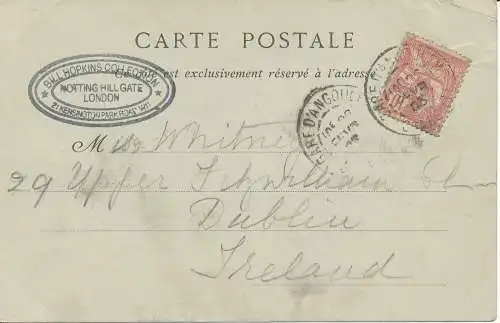 CARTE POSTALE
Ce côté est exclusivement réservé à l'adresse
BILL HOPKINS COLLECTION
NOTTING HILL GATE
LONDON
21 KENSINGTON PARK ROAD W11
GARE D'ANGOULÊ
GARE
Miss Whitney
29 Upper Fitzwilliam St
Dublin
Ireland